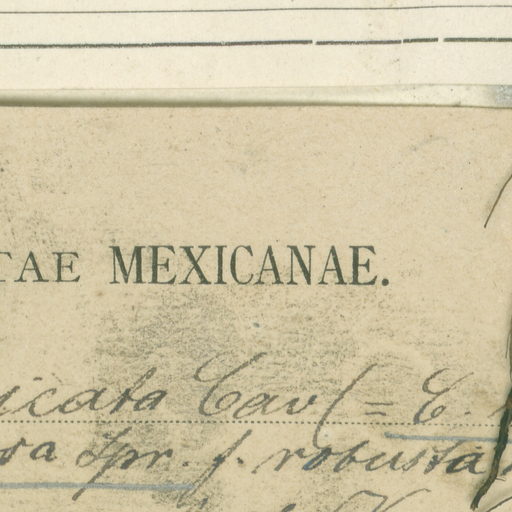 TAE MEXICANAE.
icata Cav (= C.
ra Spr. f. robusta